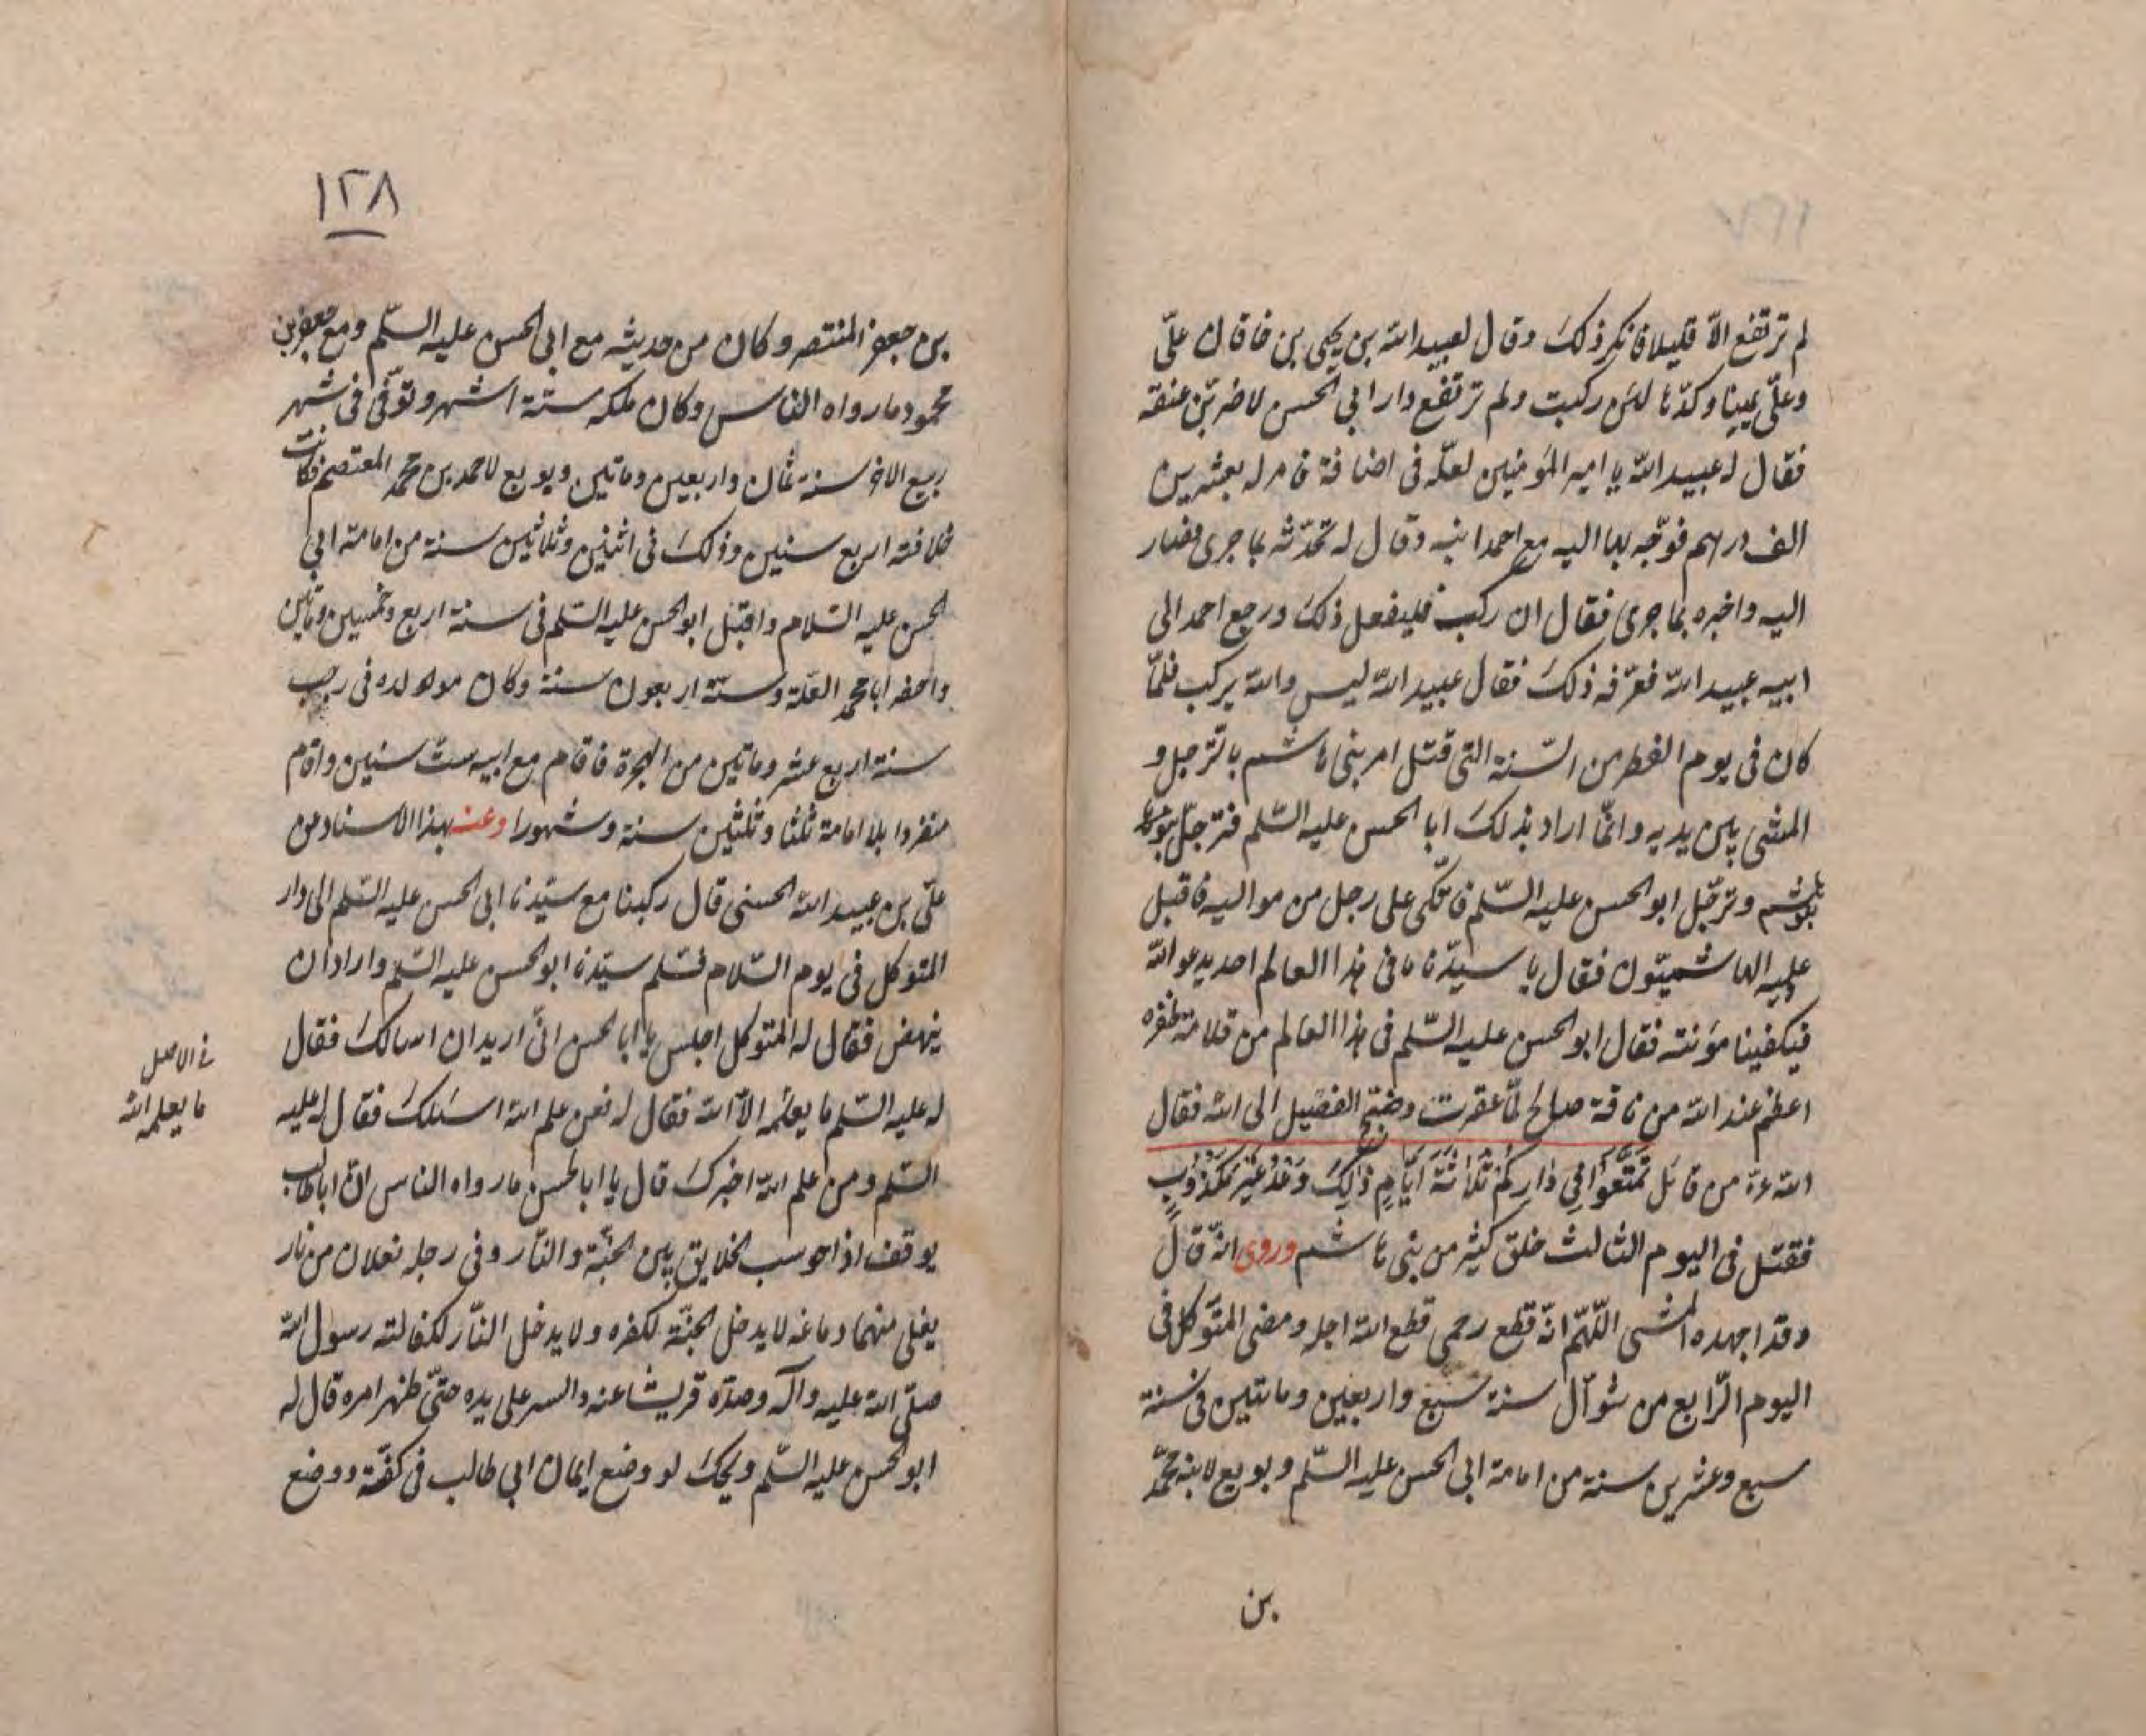 لم ترتفع الّا قليلا فانكر ذلك وقال لعبيد الله بن يحيى بن خاقان علىّ
وعلىّ يمينا وكدّها لئن ركبت ولم ترتفع دار ابي الحسن لاضربنّ عنقه
فقال له عبيد الله يا امير المؤمنين لعلّه في اضافة فامر له بعشرين
الف درهم فوجّه بها اليه مع احمد ابنه وقال له تحدّثه بما جرى فصار
اليه واخبره بما جرى فقال ان ركب فليفعل ذلك ورجع احمد الى
ابيه عبيد الله فعرّفه ذلك فقال عبيد الله ليس والله يركب فلمّا
كان في يوم الفطر من السّنة التى قتل امر بنى هاشم بالترجل و
المشى بين يديه وانّما اراد بذلك ابا الحسن عليه السّلم فترجّل بنو
هاشم وترجّل ابو الحسن عليه السّلم فاتّكى على رجل من مواليه فاقبل
عليه الهاشميّون فقال يا سيّدنا ما فى هذا العالم احد يدعو الله
فيكفينا مؤنته فقال ابو الحسن عليه السّلم فى هذا العالم من قلامة ظفره
اعظم عند الله من ناقة صالح لمّا عقرت وضجّ الفصيل الى الله فقال
الله عزّ من قائل تَمَتَّعُوا فِي دَارِكُمْ ثَلَاثَةَ اَيَّامٍ ذَلِكَ وَعْدٌ غَيْرُ مَكْذُوبٍ
فقتل فى اليوم الثالث خلق كثير من بنى هاشم وروى انّه قال
وقد اجهده المشى اللّهمّ انّه قطع رحمى قطع الله اجله ومضى المتوكّل فى
اليوم الرّابع من شوّال سنة سبع واربعين ومايتين فى سنة
سبع وعشرين سنة من امامة ابى الحسن عليه السّلم وبويع لابنه محمّد
بن
١٢٨
بن جعفر المنتصر وكان من حديثه مع ابى الحسن عليه السّلم ومع جعفر بن
محمود ما رواه الناس وكان ملكه ستّة اشهر وتوفّى فى شهر
ربيع الاخر سنة ثمان واربعين وماتين وبويع لاحمد بن محمد المعتصم فكانت
خلافته اربع سنين وذلك فى اثنين وثلاثين سنة من امامة ابي
الحسن عليه السّلام واعتل ابو الحسن عليه السّلم فى سنة اربع وخمسين وماتين
واحضر ابا محمد العلّة وسنّه اربعون سنة وكان مولده فى رجب
سنة اربع عشر وماتين من الهجرة فاقام مع ابيه ست سنين واقام
منفردا بالامامة ثلثا وثلثين سنة وشهورا وعنه بهذا الاسناد من
علىّ بن عبيد الله الحسنى قال ركبنا مع سيّدنا ابى الحسن عليه السّلم الى دار
المتوكل فى يوم السّلام فسلم سيّدنا ابو الحسن عليه السّلم واراد ان
ينهض فقال له المتوكل اجلس يا ابا الحسن انّى اريد ان اسالك فقال
له عليه السّلم ما يعلمه الّا الله فقال له فمن علم الله اسئلك فقال له عليه
السّلم ومن علم الله اخبرك قال يا ابا الحسن ما رواه الناس انّ ابا طالب
يوقف اذا حوسب الخلايق بين الجنّة والنّار وفى رجله نعلان من نار
يغلى منهما دماغه لا يدخل الجنّة لكفره ولا يدخل النّار لكفالته رسول الله
صلّى الله عليه وآله وصدّه قريشا عنه والسر على يده حتّى ظهر امره قال له
ابو الحسن عليه السّلم ويحك لو وضع ايمان ابي طالب فى كفّة ووضع
فى الاصل
ما يعلمه الله